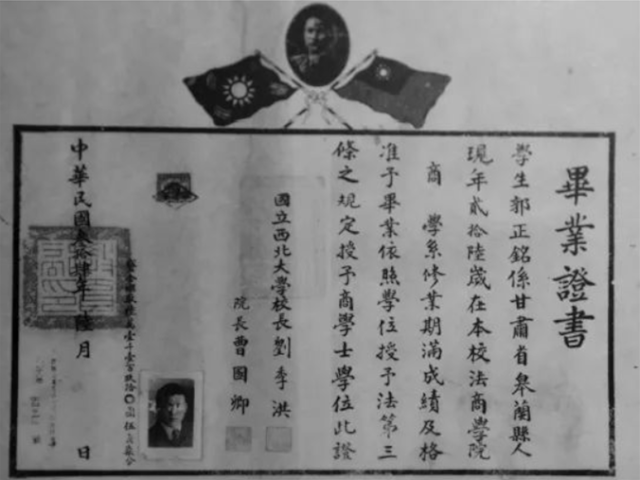 畢業證書
學生郭正銘係甘肅省皋蘭縣人
現年貳拾陸歲在本校法商學院
商學系修業期滿成績及格
准予畢業依照學位授予法第三
條之規定授予商學士學位此證
國立西北大學校長劉季洪
院長曹國卿
中華民國叁拾肆年陸月 日